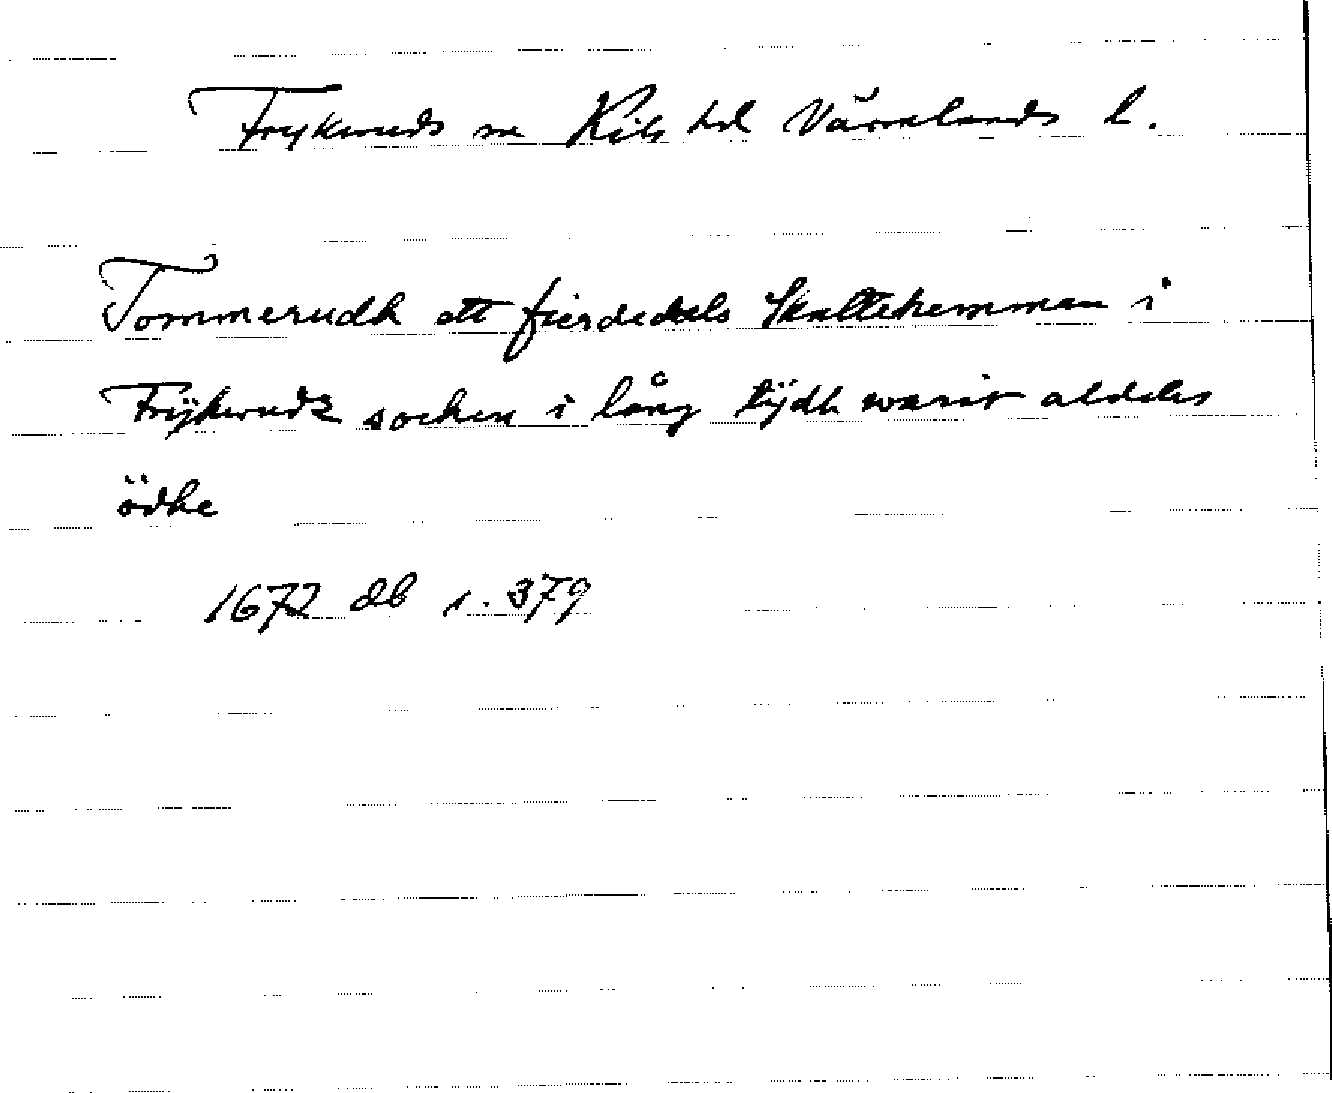 Frykeruds sn Kils hd Värmlands l.
Tommerudh ett fierdedels Skattehemman i
Frÿkerudz socken i lång tÿdh warit aldeles
ödhe
1672 db s. 379